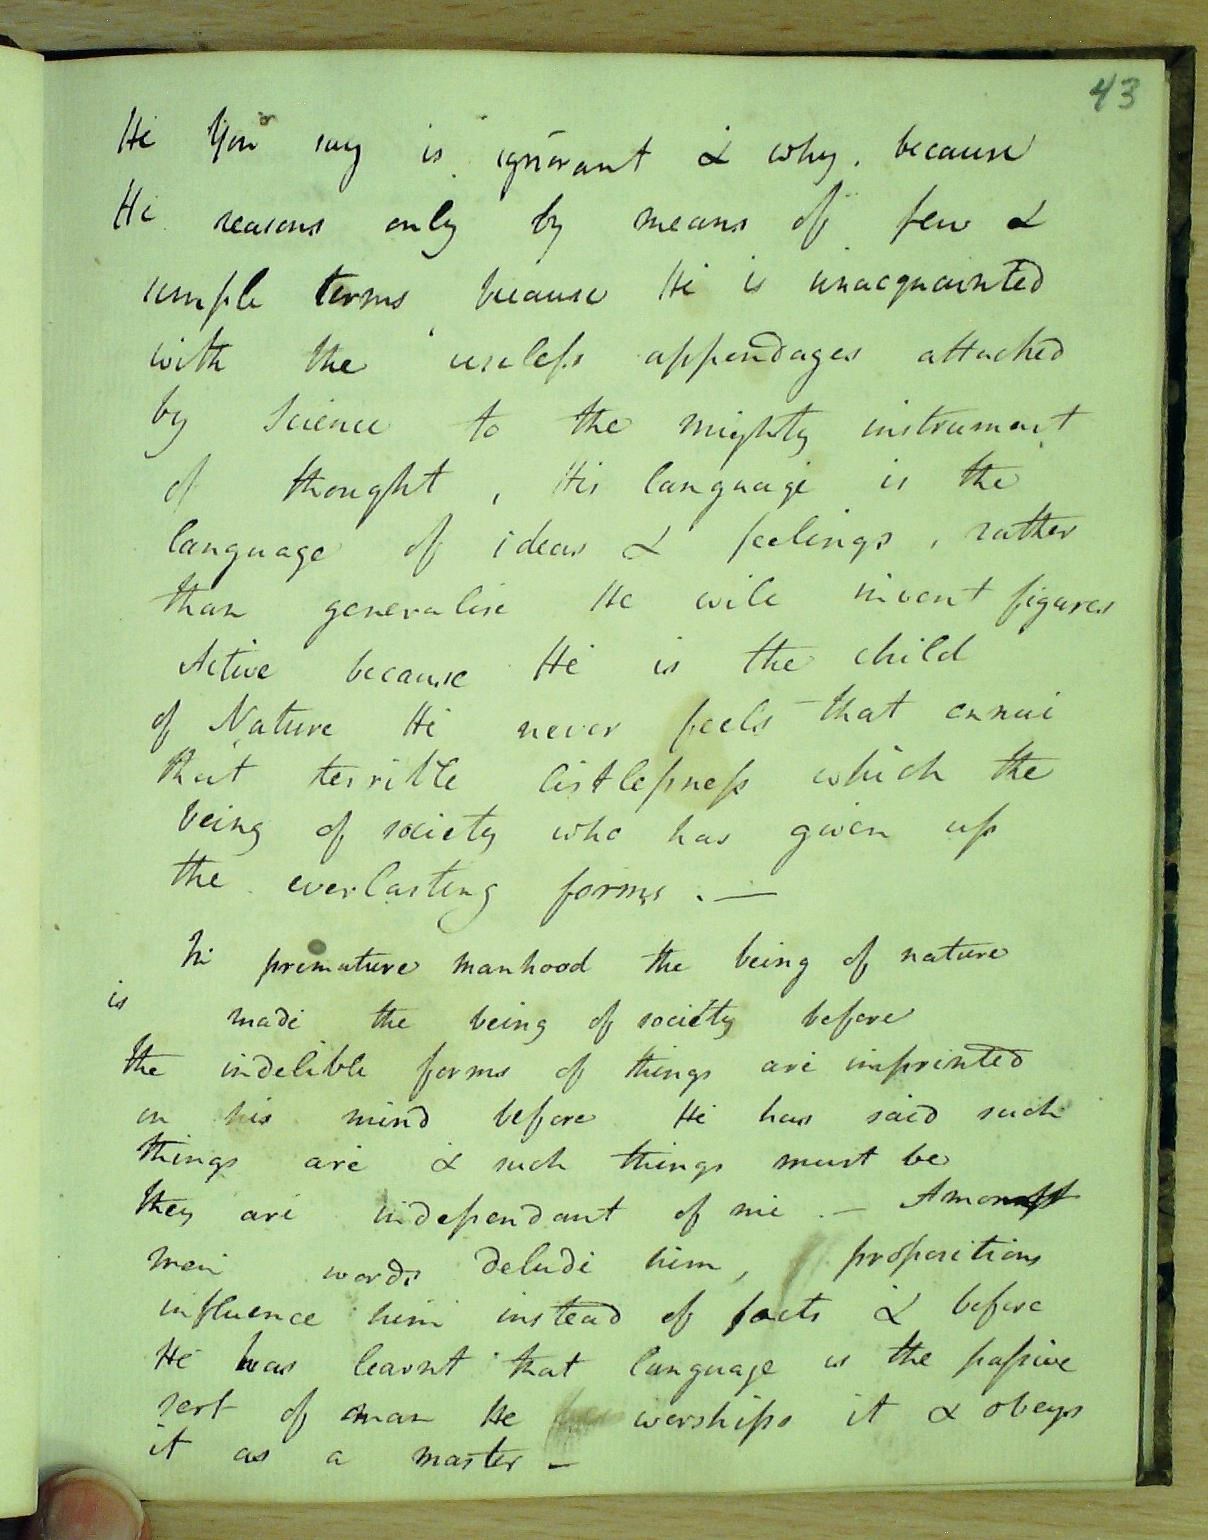 43
He You say is ignorant & why. because
He reasons only by means of few &
simple terms because He is unacquainted
with the useless appendages attached
by Science to the mighty instrument
of thought, His language is the
language of ideas & feelings, rather
than generalise He will invent figures
Active because He is the child
of Nature He never feels that ennui
that terrible listlessness which the
being of society who has given up
the everlasting forms. —
In premature manhood the being of nature
is made the being of society before
the indelible forms of things are imprinted
on his mind before He has said such
things are & such things must be
they are independant of me. — Amongst
men words delude him, propositions
influence him instead of facts & before
He has learnt that language is the passive
serf of man He worships it & obeys
it as a master —